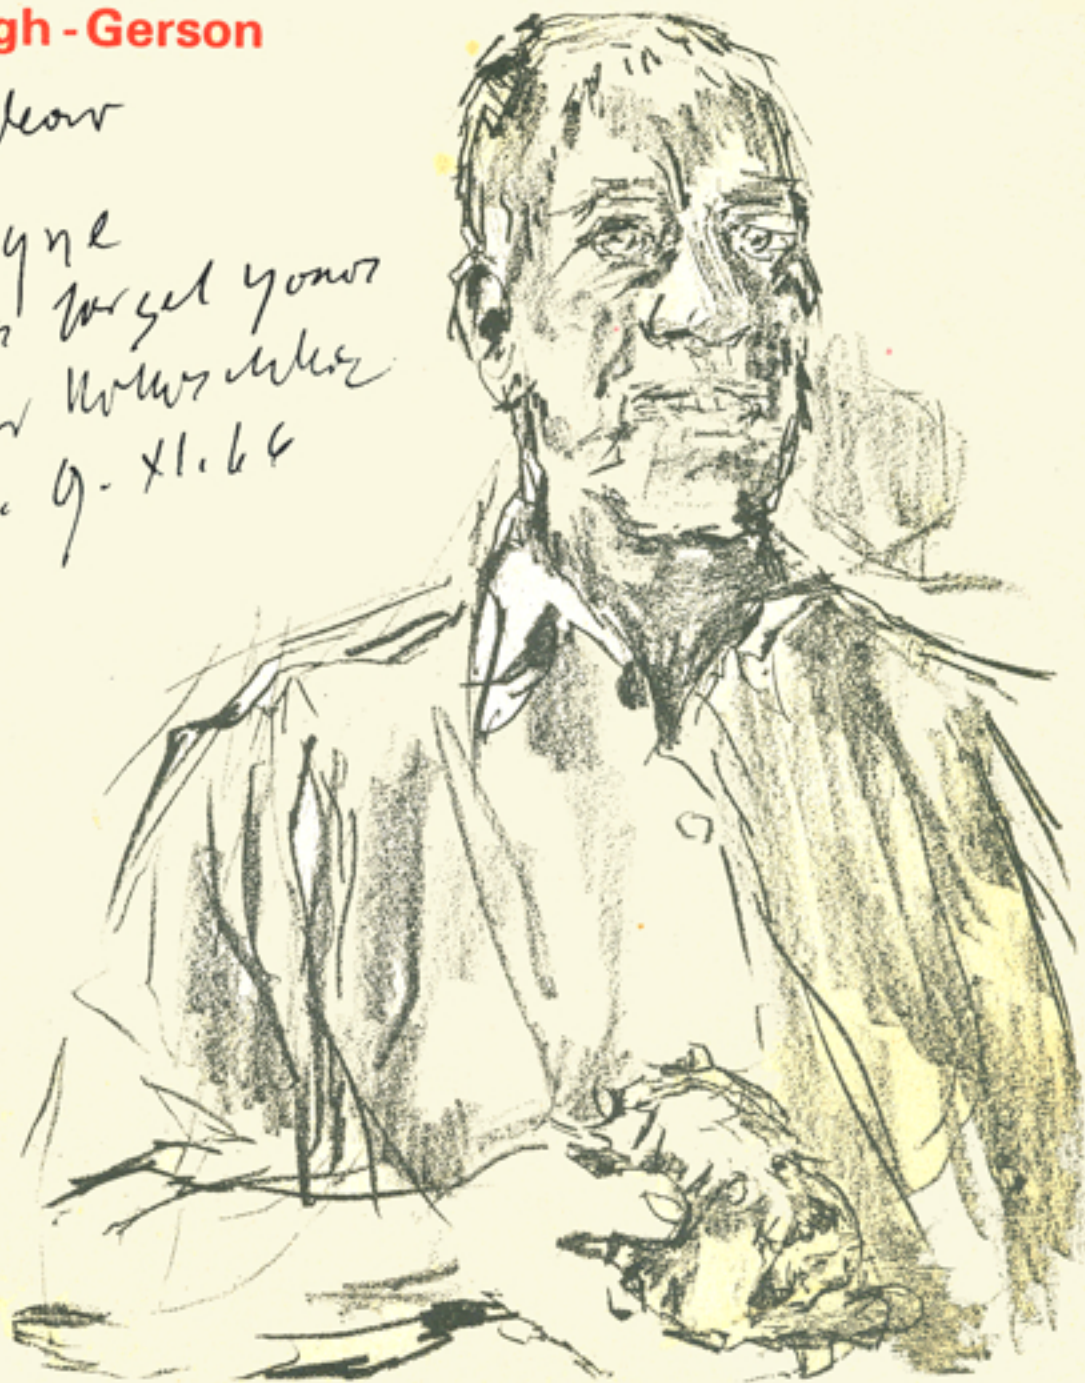 gh - Gerson
dear
yne
forget your
Kokoschka
9. XI. 66